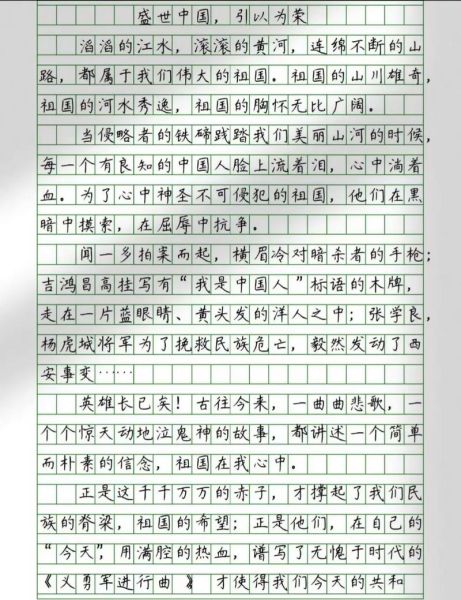 盛世中国，引以为荣
滔滔的江水，滚滚的黄河，连绵不断的山
路，都属于我们伟大的祖国。祖国的山川雄奇，
祖国的河水秀逸，祖国的胸怀无比广阔。
当侵略者的铁碲践踏我们美丽山河的时候，
每一个有良知的中国人脸上流着泪，心中淌着
血。为了心中神圣不可侵犯的祖国，他们在黑
暗中摸索，在屈辱中抗争。
闻一多拍案而起，横眉冷对暗杀者的手枪；
吉鸿昌高挂写有“我是中国人”标语的木牌，
走在一片蓝眼睛、黄头发的洋人之中；张学良，
杨虎城将军为了挽救民族危亡，毅然发动了西
安事变……
英雄长已矣！古往今来，一曲曲悲歌，一
个个惊天动地泣鬼神的故事，都讲述一个简单
而朴素的信念，祖国在我心中。
正是这千千万万的赤子，才撑起了我们民
族的脊梁，祖国的希望；正是他们，在自己的
“今天”，用满腔的热血，谱写了无愧于时代的
《义勇军进行曲》才使得我们今天的共和